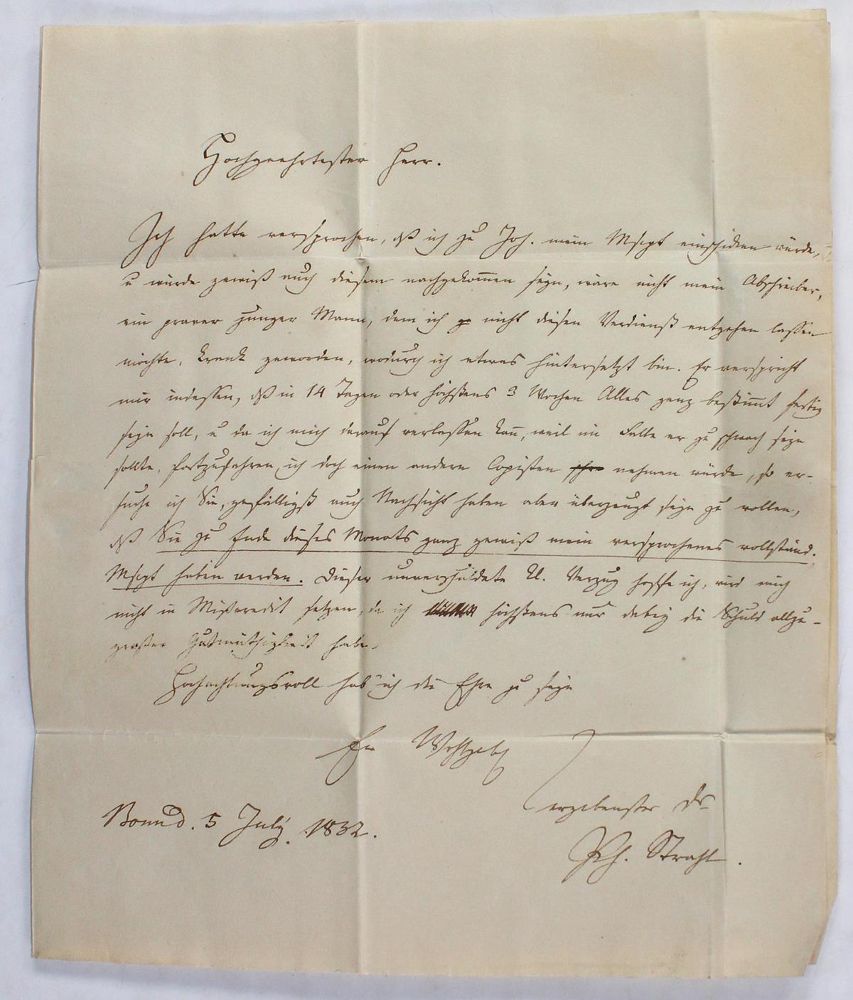 Hochgeehrtester Herr.
Ich hatte versprochen, dß ich zu Joh. mein Mscpt einschicken würde,
u würde gewiß auch diesem nachgekommen seyn, wäre nicht mein Abschreiber,
ein braver junger Mann, dem ich nicht diesen Verdienst entgehen lassen
möchte, krank geworden, wodurch ich etwas hintersetzt bin. Er verspricht
mir indessen, dß in 14 Tagen oder höchstens 3 Wochen Alles ganz bestimmt fertig
seyn soll, u da ich mich darauf verlassen kann, weil im Falle er zu schwach seyn
sollte, fortzufahren, ich doch einen andern Copisten nehmen würde, so er-
suche ich Sie, gefälligst auch Nachsicht haben aber überzeugt seyn zu wollen,
dß Sie zu Ende dieses Monats ganz gewiß mein versprochenes vollständ.
Mscpt haben werden. Dieser unverschuldete Verzug hoffe ich, wird mich
nicht in Mißcredit setzen, da ich höchstens nur dabey die Schuld allzu-
großer Gutmüthigkeit habe.
Hochachtungsvoll hab ich die Ehre zu seyn
Ew Wohlgeb
ergebenster Dr
Bonn d. 5 July 1832.
Ph. Strahl.